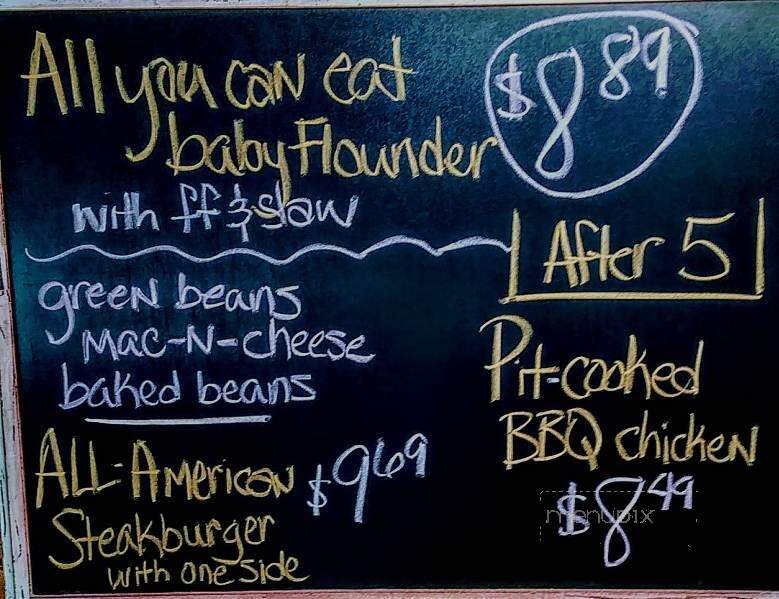 All you can eat
baby Flounder
$8.89
with ff & slaw
green beans
Mac-N-cheese
baked beans
ALL-American
Steakburger
with one side
$9.69
After 5
Pit-cooked
BBQ chicken
$8.49
menupix